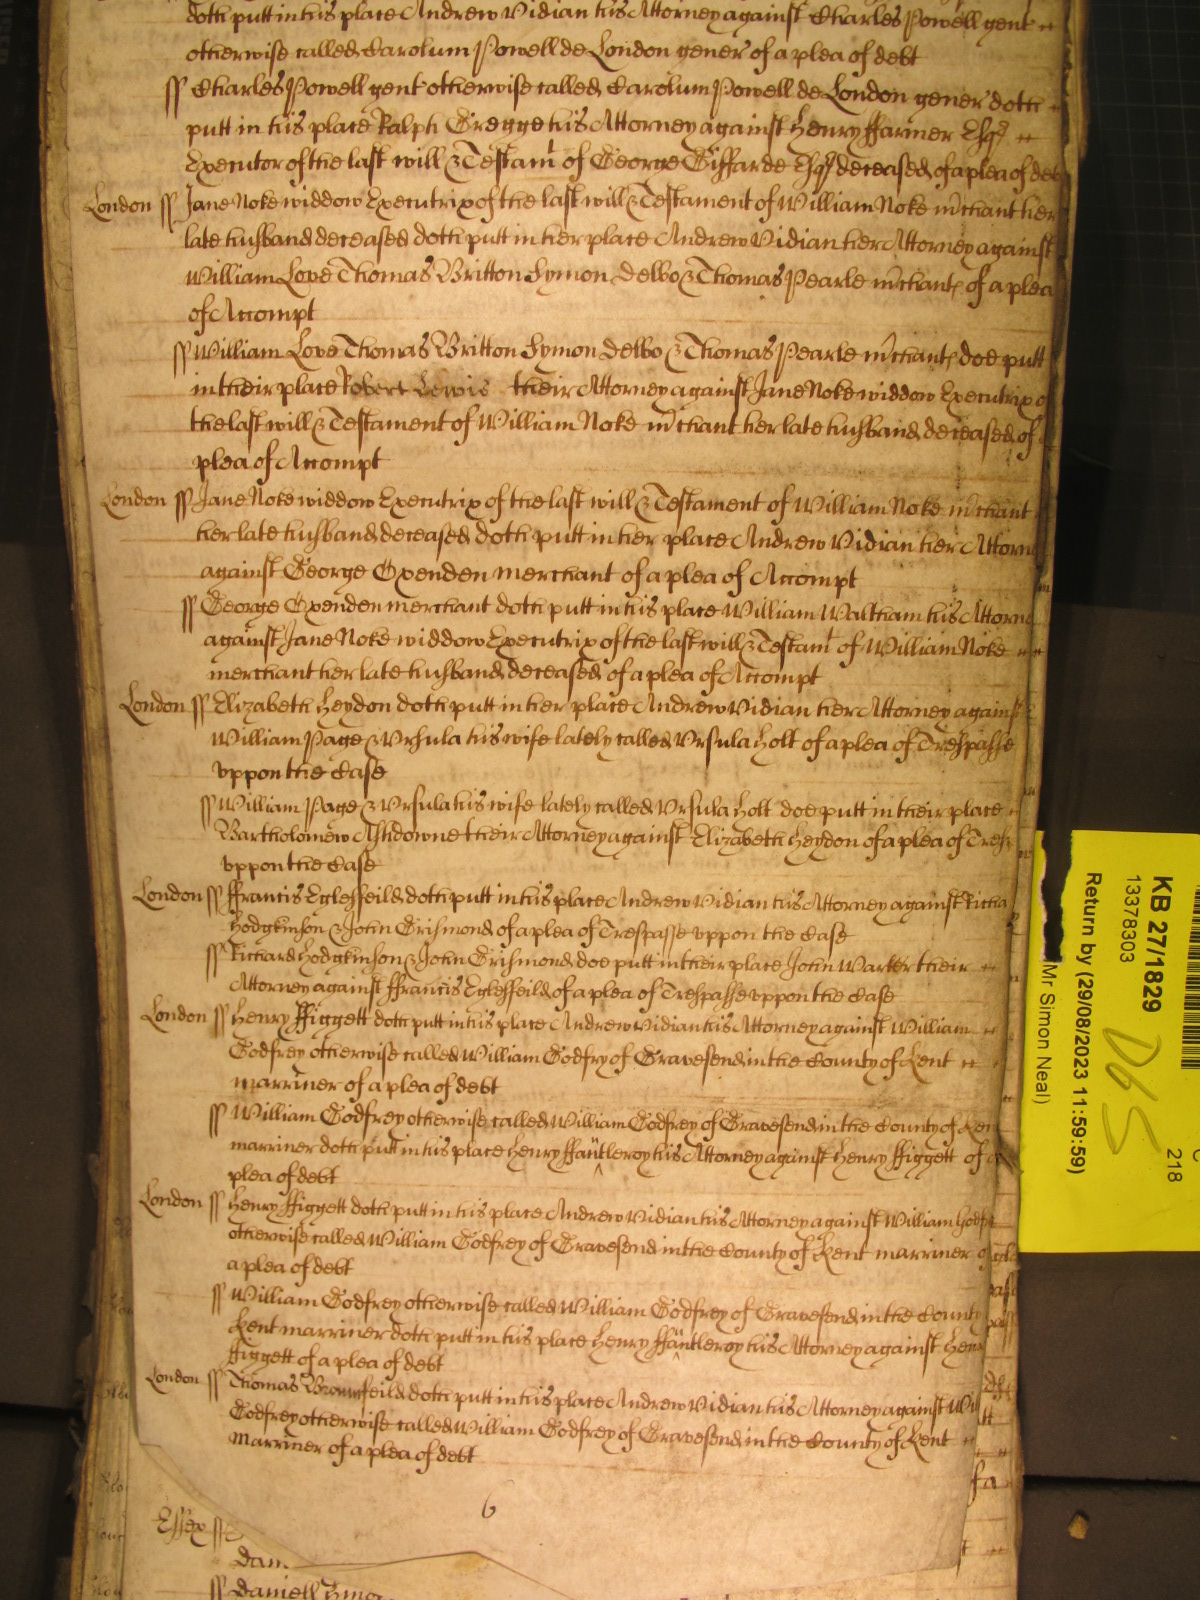 doth putt in his place Andrew Vidian his Attorney against Charles Powell gent
otherwise called Carolum Powell de London gener of a plea of debt
ss Charles Powell gent otherwise called Carolum Powell de London gener doth
putt in his place Ralph Gregge his Attorney against Henry ffarmer Esqr
Executor of the last will & Testamt of George Giffarde Esqr deceased of a plea of deb
London ss Jane Noke widdow Executrix of the last will & Testament of William Noke mrchant her
late husband deceased doth putt in her place Andrew Vidian her Attorney against
William Love Thomas Britton Symon Delbo & Thomas Pearle mrchants of a plea
of Accompt
ss William Love Thomas Britton Symon Delbo & Thomas Pearle mrchants doe putt
in their place Robert Lewis their Attorney against Jane Noke widdow Executrix o
the last will & Testament of William Noke mrchant her late husband deceased of
plea of Accompt
London ss Jane Noke widdow Executrix of the last will & Testament of William Noke mrchant
her late husband deceased doth putt in her place Andrew Vidian her Attorn
against George Oxenden merchant of a plea of Accompt
ss George Oxenden merchant doth putt in his place William Waltham his Attorn
against Jane Noke widdow Executrix of the last will & Testamt of William Noke
merchant her late husband deceased of a plea of Accompt
London ss Elizabeth Heydon doth putt in her place Andrew Vidian her Attorney against
William Page & Vrsula his wife lately called Vrsula Holt of a plea of Trespasse
vppon the Case
ss William Page & Vrsula his wife lately called Vrsula Holt doe putt in their place
Bartholomew Ashdowne their Attorney against Elizabeth Heydon of a plea of Tresp
vppon the Case
London ss ffrancis Eglesfeild doth putt in his place Andrew Vidian his Attorney against Richa
Hodgkinson & John Grismond of a plea of Trespasse vppon the Case
ss Richard Hodgkinson & John Grismond doe putt in their place John Warter their
Attorney against ffrancis Eglesfeild of a plea of Trespasse vppon the Case
London ss Henry ffiggett doth putt in his place Andrew Vidian his Attorney against William
Godfrey otherwise called William Godfry of Gravesend in the County of Kent
marriner of a plea of debt
ss William Godfrey otherwise called William Godfrey of Gravesend in the County of Ken
marriner doth putt in his place Henry ffantleroy his Attorney against Henry ffiggett of a
plea of debt
London ss Henry ffiggett doth putt in his place Andrew Vidian his Attorney against William Godfr
otherwise called William Godfrey of Gravesend in the County of Kent marriner o
a plea of debt
ss William Godfrey otherwise called William Godfrey of Gravesend in the County
Kent marriner doth putt in his place Henry ffantleroy his Attorney against Henr
ffiggett of a plea of debt
London ss Thomas Brownfeild doth putt in his place Andrew Vidian his Attorney against Wil
Godfrey otherwise called William Godfrey of Gravesend in the County of Kent
Marriner of a plea of debt
6
Essex ss
Dan
ss Daniell
KB 27/1829
13378303
Return by (29/08/2023 11:59:59)
Mr Simon Neal)
D65
218